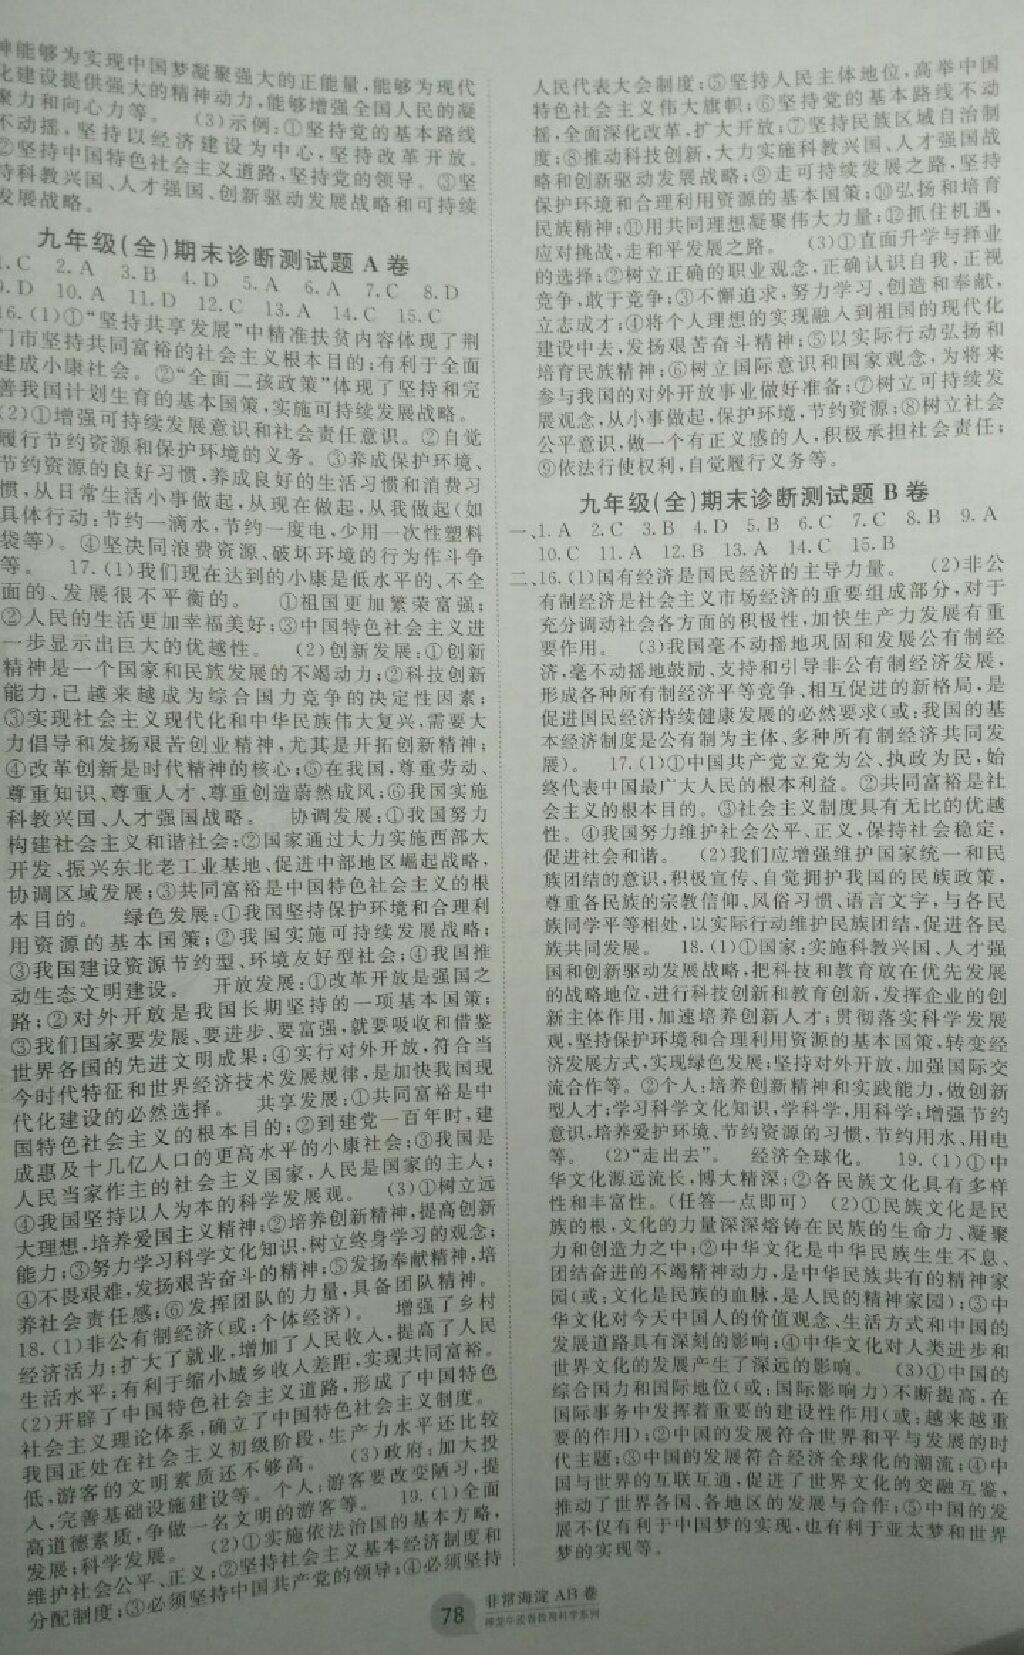 神能够为实现中国梦凝聚强大的正能量,能够为现代
化建设提供强大的精神动力,能够增强全国人民的凝
聚力和向心力等。 (3)示例:①坚持党的基本路线
不动摇,坚持以经济建设为中心,坚持改革开放。
②坚持中国特色社会主义道路,坚持党的领导。③坚
持科教兴国、人才强国、创新驱动发展战略和可持续
发展战略。
九年级(全)期末诊断测试题 A 卷
1.C 2.A 3.B 4.D 5.A 6.A 7.C 8.D
9.D 10.A 11.D 12.C 13.A 14.C 15.C
16.(1)①“坚持共享发展”中精准扶贫内容体现了荆
门市坚持共同富裕的社会主义根本目的;有利于全面
建成小康社会。②“全面二孩政策”体现了坚持和完
善我国计划生育的基本国策,实施可持续发展战略。
(2)①增强可持续发展意识和社会责任意识。②自觉
履行节约资源和保护环境的义务。③养成保护环境、
节约资源的良好习惯,养成良好的生活习惯和消费习
惯,从日常生活小事做起,从现在做起,从我做起(如
具体行动:节约一滴水,节约一度电,少用一次性塑料
袋等)。④坚决同浪费资源、破坏环境的行为作斗争
等。 17.(1)我们现在达到的小康是低水平的、不全
面的、发展很不平衡的。 ①祖国更加繁荣富强;
②人民的生活更加幸福美好;③中国特色社会主义进
一步显示出巨大的优越性。 (2)创新发展:①创新
精神是一个国家和民族发展的不竭动力;②科技创新
能力,已越来越成为综合国力竞争的决定性因素;
③实现社会主义现代化和中华民族伟大复兴,需要大
力倡导和发扬艰苦创业精神,尤其是开拓创新精神;
④改革创新是时代精神的核心;⑤在我国,尊重劳动、
尊重知识、尊重人才、尊重创造蔚然成风;⑥我国实施
科教兴国、人才强国战略。 协调发展:①我国努力
构建社会主义和谐社会;②国家通过大力实施西部大
开发、振兴东北老工业基地、促进中部地区崛起战略,
协调区域发展;③共同富裕是中国特色社会主义的根
本目的。 绿色发展:①我国坚持保护环境和合理利
用资源的基本国策;②我国实施可持续发展战略;
③我国建设资源节约型、环境友好型社会;④我国推
动生态文明建设。 开放发展:①改革开放是强国之
路;②对外开放是我国长期坚持的一项基本国策;
③我们国家要发展、要进步、要富强,就要吸收和借鉴
世界各国的先进文明成果;④实行对外开放,符合当
今时代特征和世界经济技术发展规律,是加快我国现
代化建设的必然选择。 共享发展:①共同富裕是中
国特色社会主义的根本目的;②到建党一百年时,建
成惠及十几亿人口的更高水平的小康社会;③我国是
人民当家作主的社会主义国家,人民是国家的主人;
④我国坚持以人为本的科学发展观。 (3)①树立远
大理想,培养爱国主义精神;②培养创新精神,提高创新
能力;③努力学习科学文化知识,树立终身学习的观念;
④不畏艰难,发扬艰苦奋斗的精神;⑤发扬奉献精神,培
养社会责任感;⑥发挥团队的力量,具备团队精神。
18.(1)非公有制经济(或:个体经济)。 增强了乡村
经济活力;扩大了就业,增加了人民收入,提高了人民
生活水平;有利于缩小城乡收入差距,实现共同富裕。
(2)开辟了中国特色社会主义道路,形成了中国特色
社会主义理论体系,确立了中国特色社会主义制度。
我国正处在社会主义初级阶段,生产力水平还比较
低,游客的文明素质还不够高。 (3)政府:加大投
入,完善基础设施建设等。个人:游客要改变陋习,提
高道德素质,争做一名文明的游客等。 19.(1)全面
发展;科学发展。 (2)①实施依法治国的基本方略,
维护社会公平、正义;②坚持社会主义基本经济制度和
分配制度;③必须坚持中国共产党的领导;④必须坚持
人民代表大会制度;⑤坚持人民主体地位,高举中国
特色社会主义伟大旗帜;⑥坚持党的基本路线不动
摇,全面深化改革,扩大开放;⑦坚持民族区域自治制
度;⑧推动科技创新,大力实施科教兴国、人才强国战
略和创新驱动发展战略;⑨走可持续发展之路,坚持
保护环境和合理利用资源的基本国策;⑩弘扬和培育
民族精神;⑪用共同理想凝聚伟大力量;⑫抓住机遇,
应对挑战,走和平发展之路。 (3)①直面升学与择业
的选择;②树立正确的职业观念,正确认识自我,正视
竞争,敢于竞争;③不懈追求,努力学习、创造和奉献,
立志成才;④将个人理想的实现融入到祖国的现代化
建设中去,发扬艰苦奋斗精神;⑤以实际行动弘扬和
培育民族精神;⑥树立国际意识和国家观念,为将来
参与我国的对外开放事业做好准备;⑦树立可持续发
展观念,从小事做起,保护环境,节约资源;⑧树立社会
公平意识,做一个有正义感的人,积极承担社会责任;
⑨依法行使权利,自觉履行义务等。
九年级(全)期末诊断测试题 B 卷
一、1.A 2.C 3.B 4.D 5.B 6.C 7.C 8.B 9.A
10.C 11.A 12.B 13.A 14.C 15.B
二、16.(1)国有经济是国民经济的主导力量。 (2)非公
有制经济是社会主义市场经济的重要组成部分,对于
充分调动社会各方面的积极性,加快生产力发展有重
要作用。 (3)我国毫不动摇地巩固和发展公有制经
济,毫不动摇地鼓励、支持和引导非公有制经济发展,
形成各种所有制经济平等竞争、相互促进的新格局,是
促进国民经济持续健康发展的必然要求(或:我国的基
本经济制度是公有制为主体、多种所有制经济共同发
展)。 17.(1)①中国共产党立党为公、执政为民,始
终代表中国最广大人民的根本利益。②共同富裕是社
会主义的根本目的。③社会主义制度具有无比的优越
性。④我国努力维护社会公平、正义,保持社会稳定,
促进社会和谐。 (2)我们应增强维护国家统一和民
族团结的意识,积极宣传、自觉拥护我国的民族政策,
尊重各民族的宗教信仰、风俗习惯、语言文字,与各民
族同学平等相处,以实际行动维护民族团结,促进各民
族共同发展。 18.(1)①国家:实施科教兴国、人才强
国和创新驱动发展战略,把科技和教育放在优先发展
的战略地位,进行科技创新和教育创新,发挥企业的创
新主体作用,加速培养创新人才;贯彻落实科学发展
观,坚持保护环境和合理利用资源的基本国策,转变经
济发展方式,实现绿色发展;坚持对外开放,加强国际交
流合作等。②个人:培养创新精神和实践能力,做创新
型人才;学习科学文化知识,学科学,用科学;增强节约
意识,培养爱护环境、节约资源的习惯,节约用水、用电
等。 (2)“走出去”。 经济全球化。 19.(1)①中
华文化源远流长,博大精深;②各民族文化具有多样
性和丰富性。(任答一点即可) (2)①民族文化是民
族的根,文化的力量深深熔铸在民族的生命力、凝聚
力和创造力之中;②中华文化是中华民族生生不息、
团结奋进的不竭精神动力,是中华民族共有的精神家
园(或:文化是民族的血脉,是人民的精神家园);③中
华文化对今天中国人的价值观念、生活方式和中国的
发展道路具有深刻的影响;④中华文化对人类进步和
世界文化的发展产生了深远的影响。 (3)①中国的
综合国力和国际地位(或:国际影响力)不断提高,在
国际事务中发挥着重要的建设性作用(或:越来越重
要的作用);②中国的发展符合世界和平与发展的时
代主题;③中国的发展符合经济全球化的潮流;④中
国与世界的互联互通,促进了世界文化的交融互鉴,
推动了世界各国、各地区的发展与合作;⑤中国的发
展不仅有利于中国梦的实现,也有利于亚太梦和世界
梦的实现等。
78
非常海淀 AB 卷